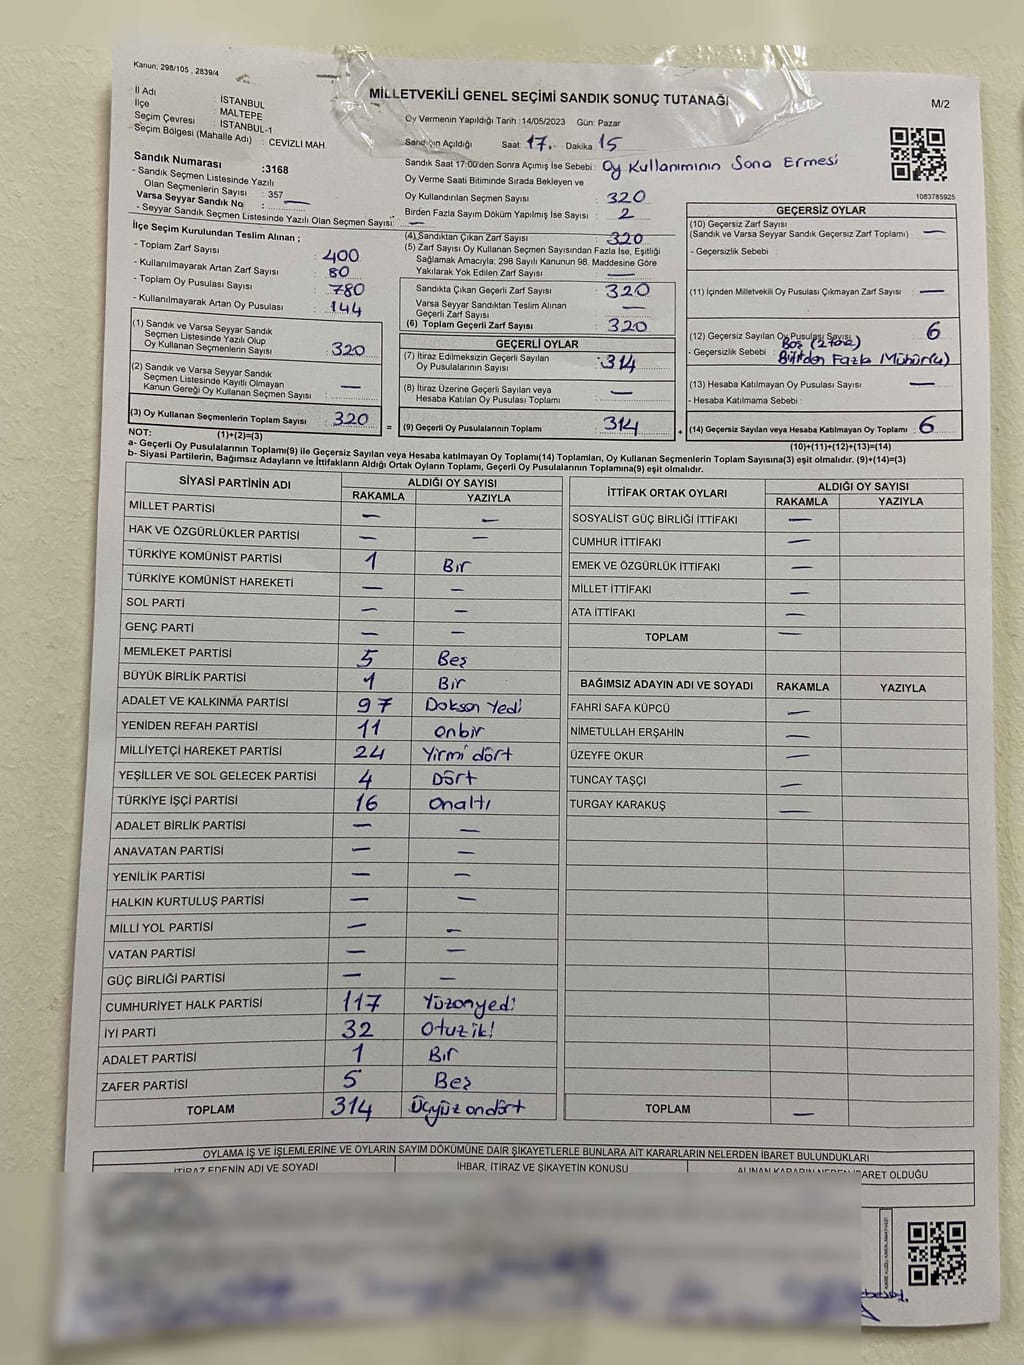 Kanun: 298/105 , 2839/4
MİLLETVEKİLİ GENEL SEÇİMİ SANDIK SONUÇ TUTANAĞI
M/2
İl Adı : İSTANBUL
İlçe : MALTEPE
Seçim Çevresi : İSTANBUL-1
Seçim Bölgesi (Mahalle Adı) : CEVİZLİ MAH.
Oy Vermenin Yapıldığı Tarih :14/05/2023 Gün: Pazar
Sandığın Açıldığı Saat 17. Dakika 15
Sandık Saat 17:00'den Sonra Açımış İse Sebebi: Oy Kullanımının Sona Ermesi
Sandık Numarası :3168
- Sandık Seçmen Listesinde Yazılı
Olan Seçmenlerin Sayısı : 357
Varsa Seyyar Sandık No : —
- Seyyar Sandık Seçmen Listesinde Yazılı Olan Seçmen Sayısı: —
Oy Verme Saati Bitiminde Sırada Bekleyen ve
Oy Kullandırılan Seçmen Sayısı : 320
Birden Fazla Sayım Döküm Yapılmış İse Sayısı : 2
1083785925
İlçe Seçim Kurulundan Teslim Alınan ;
- Toplam Zarf Sayısı : 400
- Kullanılmayarak Artan Zarf Sayısı : 80
- Toplam Oy Pusulası Sayısı : 780
- Kullanılmayarak Artan Oy Pusulası : 144
(1) Sandık ve Varsa Seyyar Sandık
Seçmen Listesinde Yazılı Olup
Oy Kullanan Seçmenlerin Sayısı : 320
(2) Sandık ve Varsa Seyyar Sandık
Seçmen Listesinde Kayıtlı Olmayan
Kanun Gereği Oy Kullanan Seçmen Sayısı : —
(3) Oy Kullanan Seçmenlerin Toplam Sayısı : 320
(1)+(2)=(3)
(4) Sandıktan Çıkan Zarf Sayısı : 320
(5) Zarf Sayısı Oy Kullanan Seçmen Sayısından Fazla İse, Eşitliği
Sağlamak Amacıyla; 298 Sayılı Kanunun 98. Maddesine Göre
Yakılarak Yok Edilen Zarf Sayısı : —
Sandıkta Çıkan Geçerli Zarf Sayısı : 320
Varsa Seyyar Sandıktan Teslim Alınan
Geçerli Zarf Sayısı : —
(6) Toplam Geçerli Zarf Sayısı : 320
GEÇERLİ OYLAR
(7) İtiraz Edilmeksizin Geçerli Sayılan
Oy Pusulalarının Sayısı : 314
(8) İtiraz Üzerine Geçerli Sayılan veya
Hesaba Katılan Oy Pusulası Toplamı : —
= (9) Geçerli Oy Pusulalarının Toplamı : 314 +
GEÇERSİZ OYLAR
(10) Geçersiz Zarf Sayısı
(Sandık ve Varsa Seyyar Sandık Geçersiz Zarf Toplamı) : —
- Geçersizlik Sebebi :
(11) İçinden Milletvekili Oy Pusulası Çıkmayan Zarf Sayısı : —
(12) Geçersiz Sayılan Oy Pusulası Sayısı : 6
- Geçersizlik Sebebi : Boş (2 tane)
Birden Fazla Mühür(4)
(13) Hesaba Katılmayan Oy Pusulası Sayısı : —
- Hesaba Katılmama Sebebi :
(14) Geçersiz Sayılan veya Hesaba Katılmayan Oy Toplamı : 6
(10)+(11)+(12)+(13)=(14)
NOT:
a- Geçerli Oy Pusulalarının Toplamı(9) ile Geçersiz Sayılan veya Hesaba katılmayan Oy Toplamı(14) Toplamları, Oy Kullanan Seçmenlerin Toplam Sayısına(3) eşit olmalıdır. (9)+(14)=(3)
b- Siyasi Partilerin, Bağımsız Adayların ve İttifakların Aldığı Ortak Oyların Toplamı, Geçerli Oy Pusulalarının Toplamına(9) eşit olmalıdır.
SİYASİ PARTİNİN ADI ALDIĞI OY SAYISI
RAKAMLA YAZIYLA
MİLLET PARTİSİ — —
HAK VE ÖZGÜRLÜKLER PARTİSİ — —
TÜRKİYE KOMÜNİST PARTİSİ 1 Bir
TÜRKİYE KOMÜNİST HAREKETİ — —
SOL PARTİ — —
GENÇ PARTİ — —
MEMLEKET PARTİSİ 5 Beş
BÜYÜK BİRLİK PARTİSİ 1 Bir
ADALET VE KALKINMA PARTİSİ 97 Doksan Yedi
YENİDEN REFAH PARTİSİ 11 onbir
MİLLİYETÇİ HAREKET PARTİSİ 24 Yirmi dört
YEŞİLLER VE SOL GELECEK PARTİSİ 4 Dört
TÜRKİYE İŞÇİ PARTİSİ 16 onaltı
ADALET BİRLİK PARTİSİ — —
ANAVATAN PARTİSİ — —
YENİLİK PARTİSİ — —
HALKIN KURTULUŞ PARTİSİ — —
MİLLİ YOL PARTİSİ — —
VATAN PARTİSİ — —
GÜÇ BİRLİĞİ PARTİSİ — —
CUMHURİYET HALK PARTİSİ 117 Yüzonyedi
İYİ PARTİ 32 Otuziki
ADALET PARTİSİ 1 Bir
ZAFER PARTİSİ 5 Beş
TOPLAM 314 Üçyüz ondört
İTTİFAK ORTAK OYLARI ALDIĞI OY SAYISI
RAKAMLA YAZIYLA
SOSYALİST GÜÇ BİRLİĞİ İTTİFAKI —
CUMHUR İTTİFAKI —
EMEK VE ÖZGÜRLÜK İTTİFAKI —
MİLLET İTTİFAKI —
ATA İTTİFAKI —
TOPLAM —
BAĞIMSIZ ADAYIN ADI VE SOYADI RAKAMLA YAZIYLA
FAHRİ SAFA KÜPCÜ —
NİMETULLAH ERŞAHİN —
ÜZEYFE OKUR —
TUNCAY TAŞÇI —
TURGAY KARAKUŞ —
TOPLAM —
OYLAMA İŞ VE İŞLEMLERİNE VE OYLARIN SAYIM DÖKÜMÜNE DAİR ŞİKAYETLERLE BUNLARA AİT KARARLARIN NELERDEN İBARET BULUNDUKLARI
İTİRAZ EDENİN ADI VE SOYADI İHBAR, İTİRAZ VE ŞİKAYETİN KONUSU ALINAN KARARIN NEDEN İBARET OLDUĞU